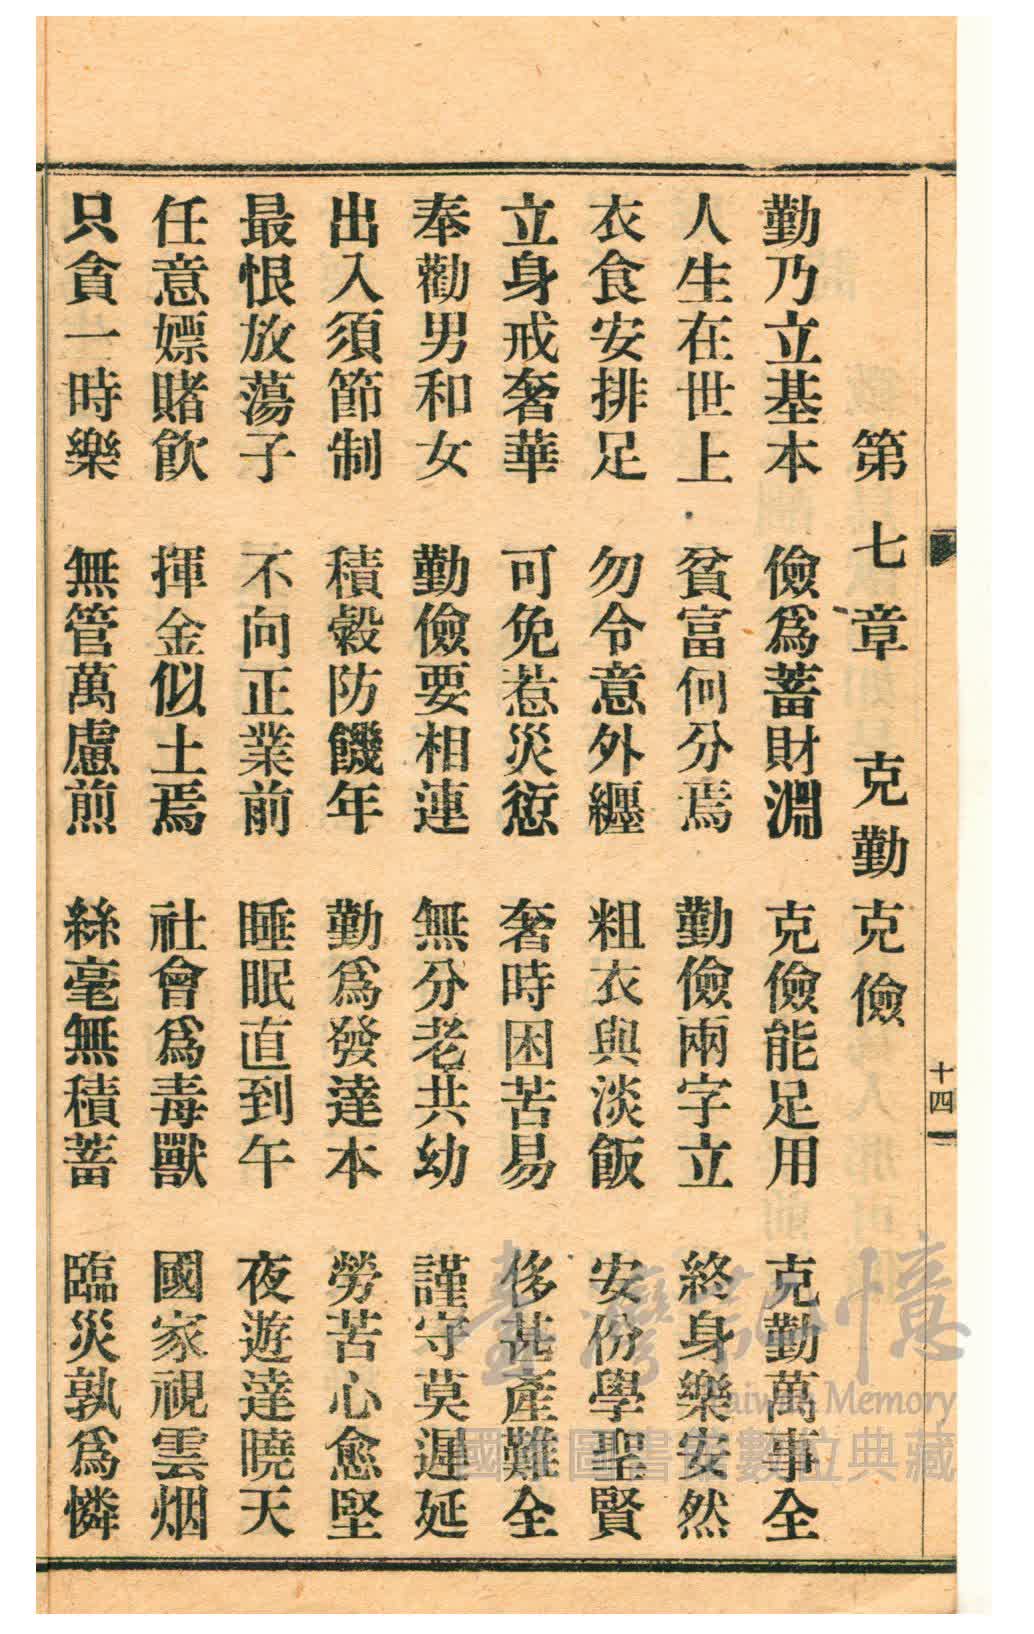 第七章　克勤克儉
勤乃立基本　儉爲蓄財淵　克儉能足用　克勤萬事全
人生在世上　貧富何分焉　勤儉兩字立　終身樂安然
衣食安排足　勿令意外纏　粗衣與淡飯　安份學聖賢
立身戒奢華　可免惹災愆　奢時困苦易　侈甚產難全
奉勸男和女　勤儉要相連　無分老共幼　謹守莫遲延
出入須節制　積穀防饑年　勤爲發達本　勞苦心愈堅
最恨放蕩子　不向正業前　睡眠直到午　夜遊達曉天
任意嫖賭飲　揮金似土焉　社會爲毒獸　國家視雲烟
只貪一時樂　無管萬慮煎　絲毫無積蓄　臨災孰爲憐
十四
臺灣記憶
Taiwan Memory
國家圖書館數位典藏